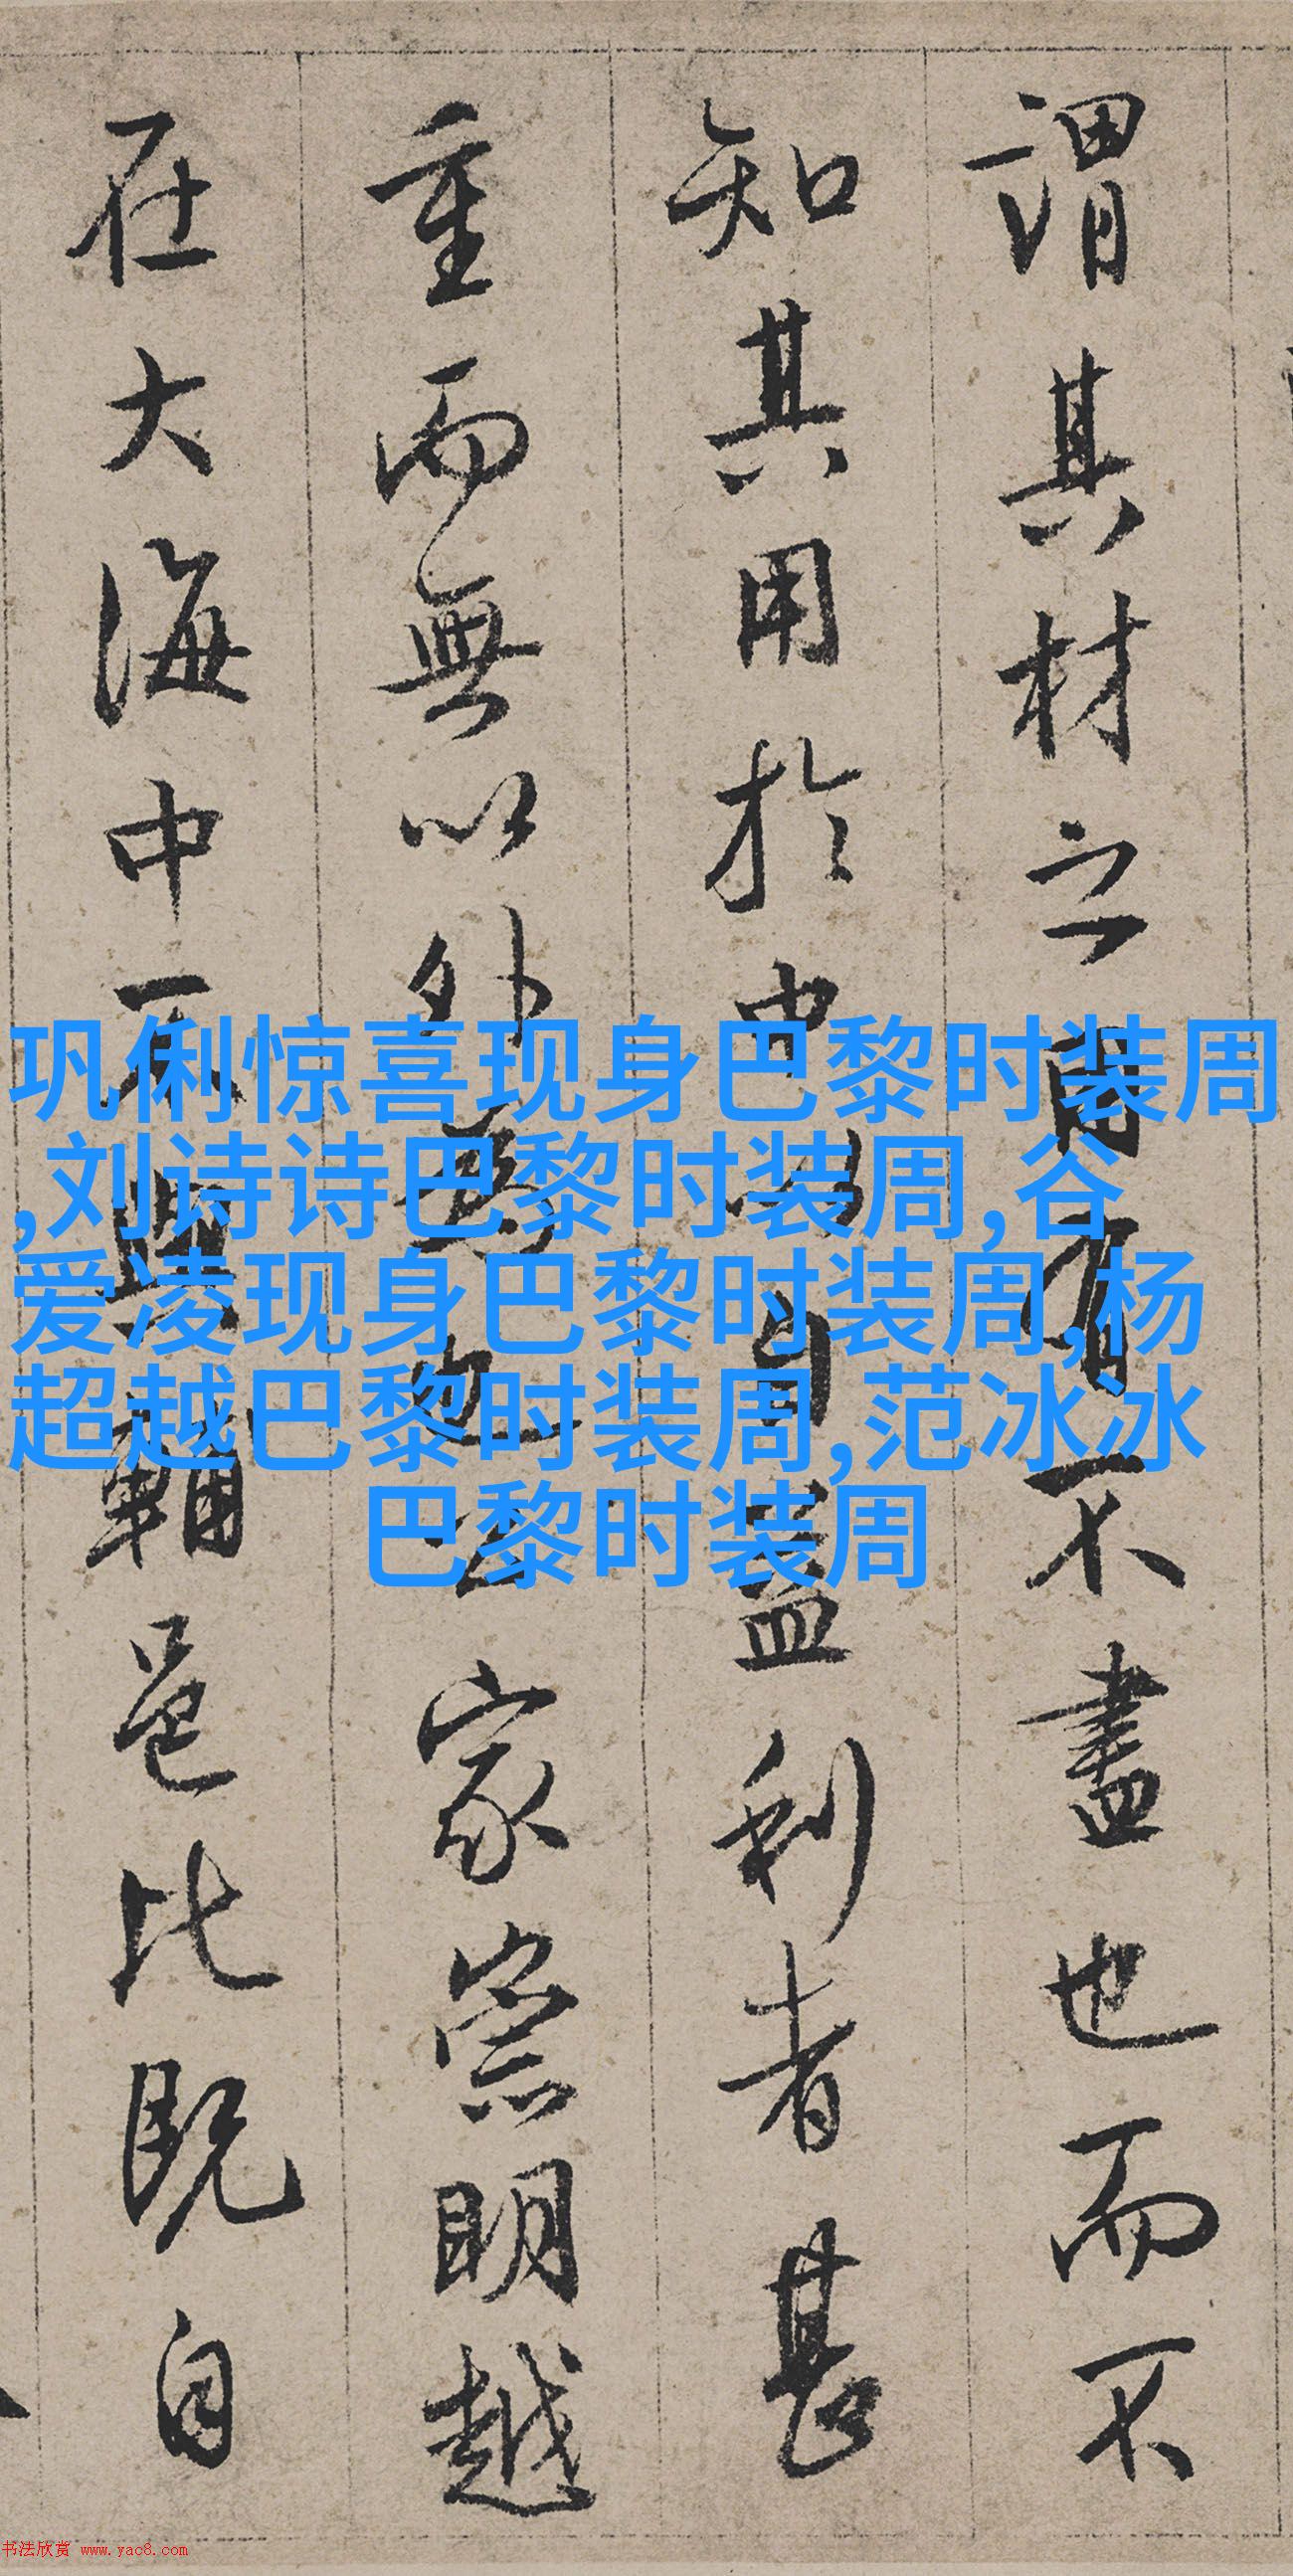 謂其材之用有不盡也而不
知其用於中益利者甚
重而無以外也家崇明越
在大海中不與輔邑比既自
巩俐惊喜现身巴黎时装周
,刘诗诗巴黎时装周,谷
爱凌现身巴黎时装周,杨
超越巴黎时装周,范冰冰
巴黎时装周
书法欣赏 www.yac8.com